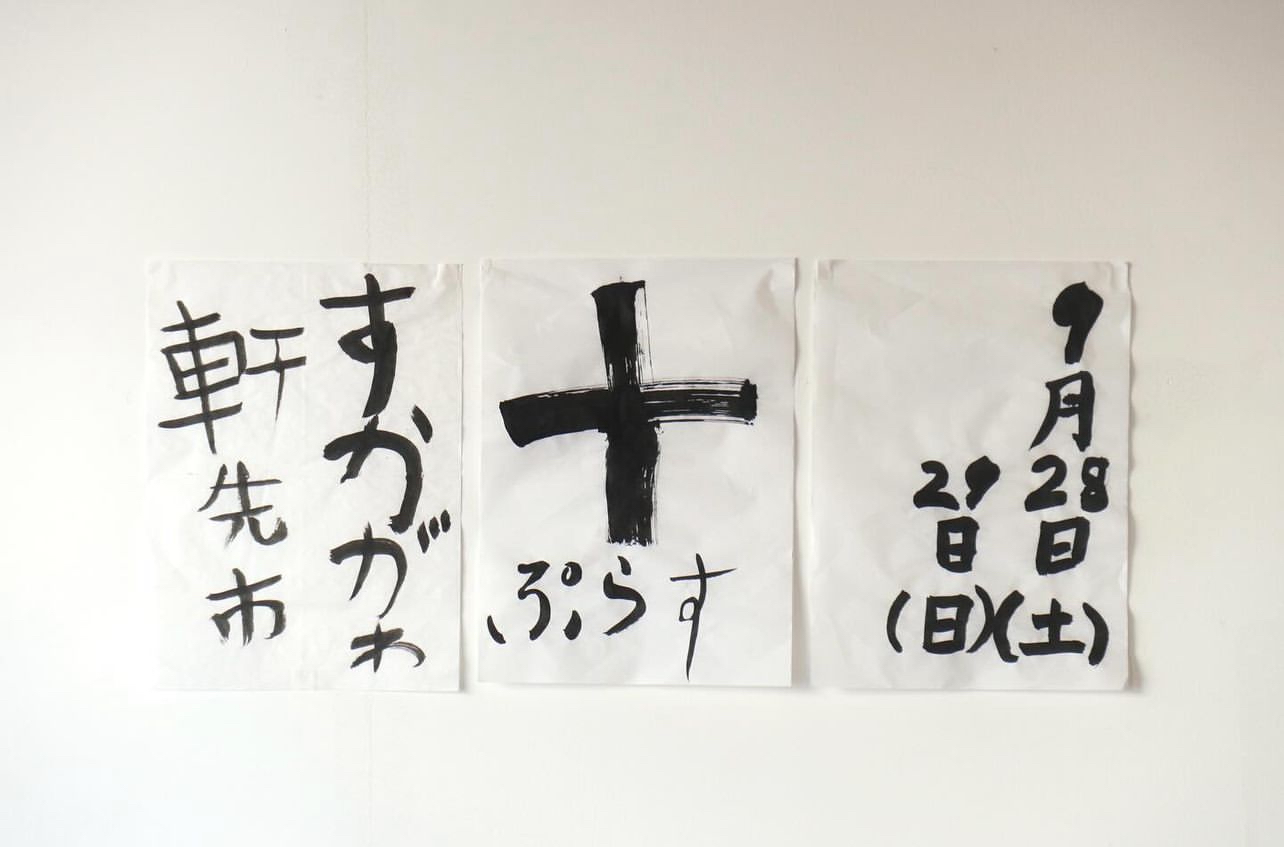 すかがわ
軒先市
十
ぷらす
9月28日(土)
29日(日)